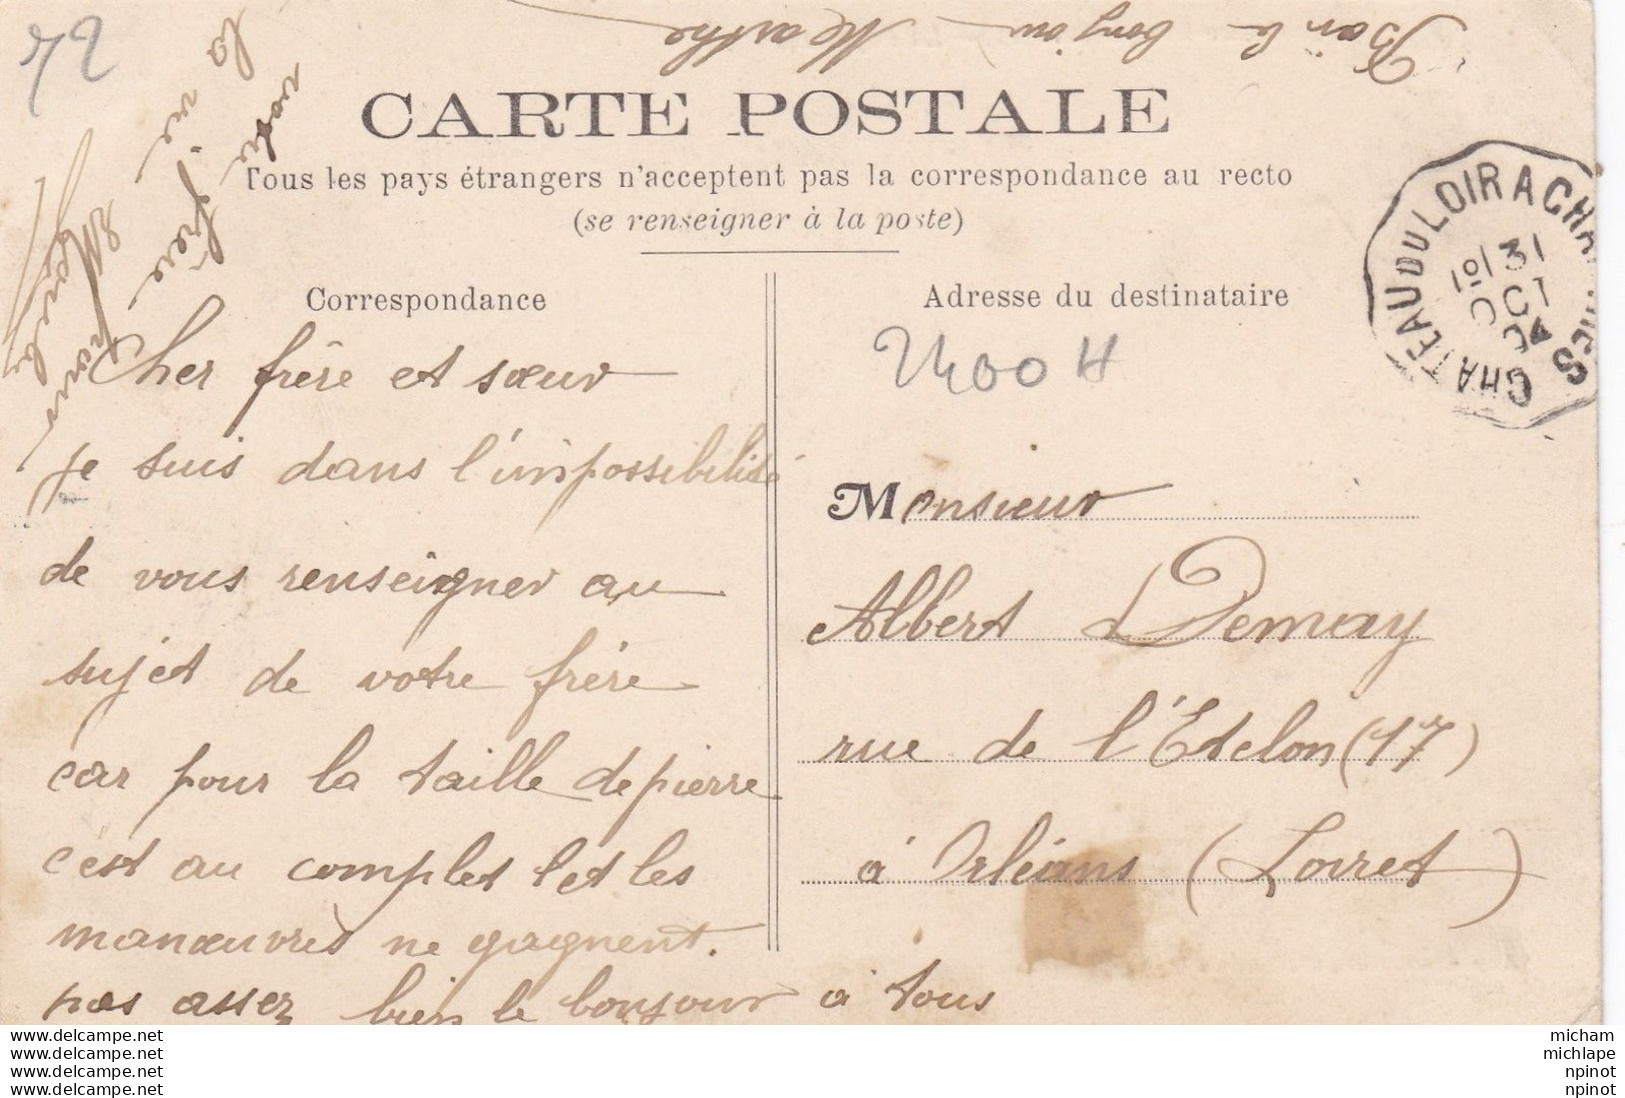 72
Bien le bonjour Marthe
CARTE POSTALE
Tous les pays étrangers n'acceptent pas la correspondance au recto
(se renseigner à la poste)
Correspondance
Adresse du destinataire
CHATEAU DU LOIR A CHARTRES
1º/31
OCT
2400 H
Cher frère et sœur
je suis dans l'impossibilité
de vous renseigner au
sujet de votre frère
car pour la taille de pierre
c'est au complet et les
manœuvres ne gagnent.
pas assez bien le bonjour à tous
votre
frère
Monsieur
Albert Demay
rue de l'Etelon (17)
à Orléans (Loiret)
www.delcampe.net
www.delcampe.net
www.delcampe.net
www.delcampe.net
micham
michlape
npinot
npinot